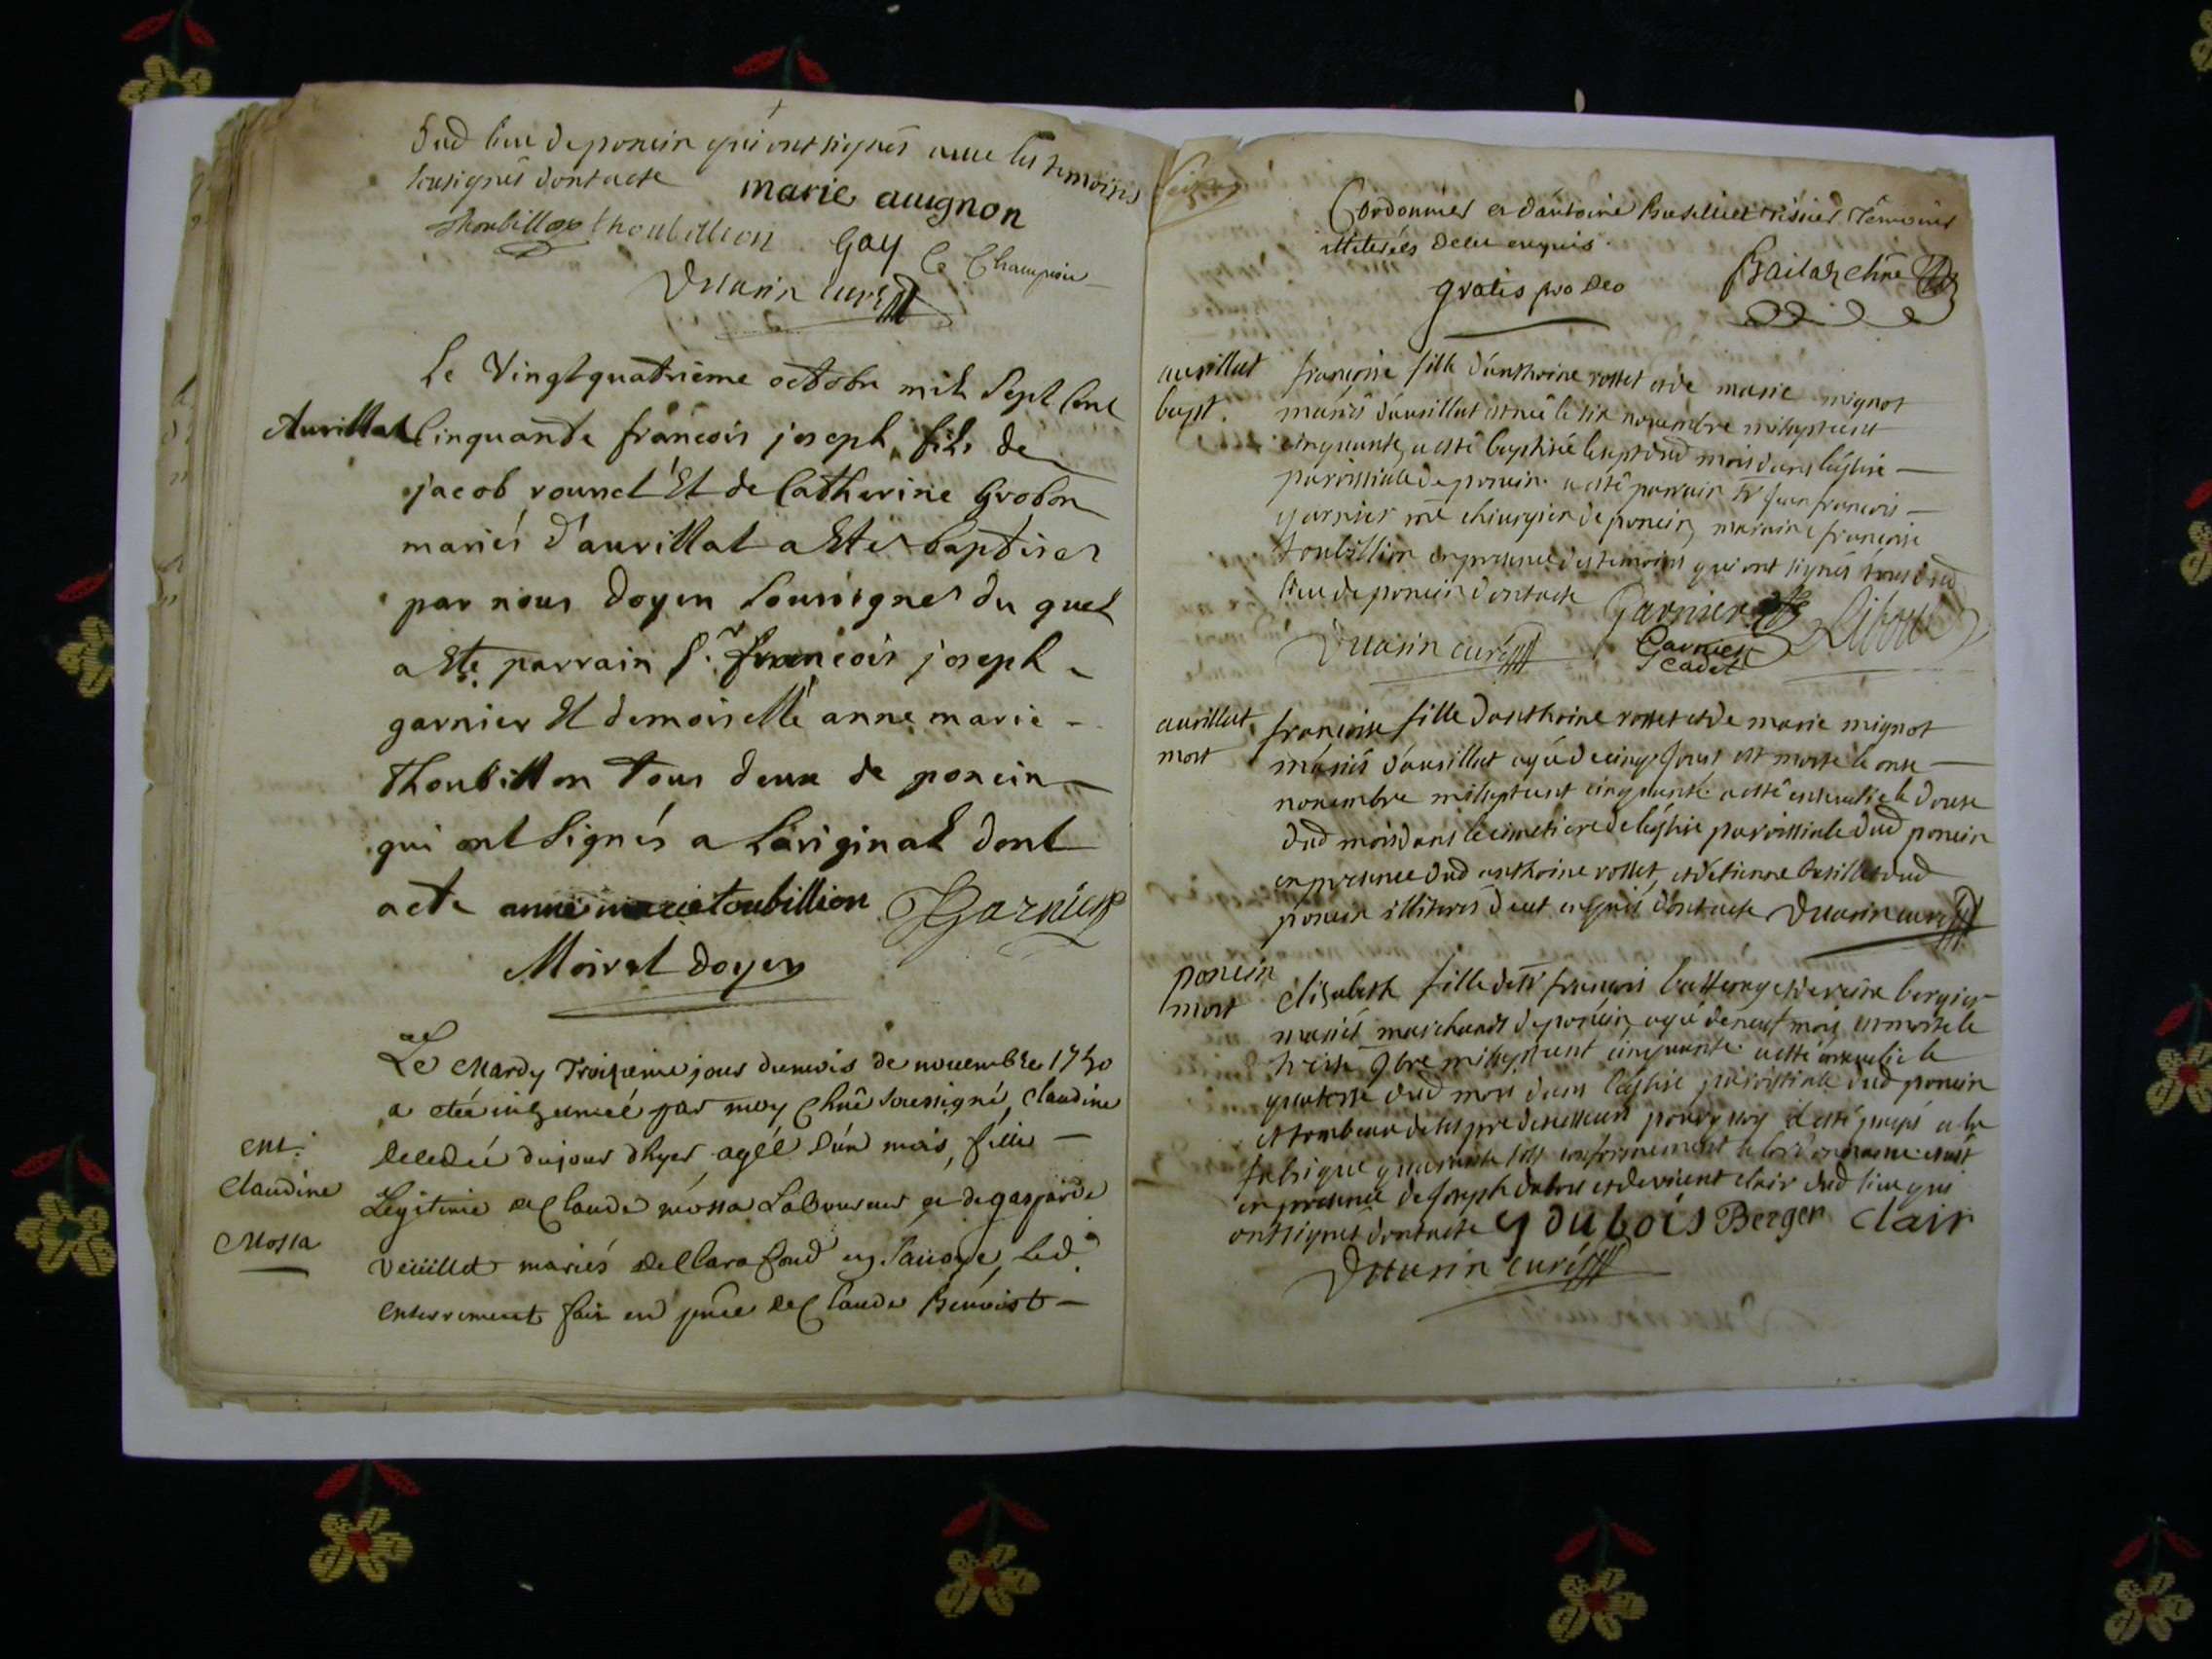 dud lieu de poncin qui ont signés avec les temoins
sousignés dont acte marie auugnon
thoubillion Gay C Champion
Duarin curé
Le Vingt quatrième octobre mil Sept Cent
Aurillat Cinquante françois joseph fils de
jacob rounet Et de Catherine Grobon
mariés d'aurillat a Eté baptisez
par nous Doyen Soussigné du quel
a Eté parrain Sr. françois joseph
garnier Et demoiselle anne marie
Thoubillon Tous deux de poncin
qui ont Signés a L'original dont
acte anne marie toubillion Garnier
Moiret doyen
Le Mardy Troizieme jour du mois de nouembre 1750
a été inhumeé par moy soussigné, claudine
ent. decedeé du jour d'hyer ageé d'un mois, fille
Claudine Legitime de Claude mossa Laboureur et de gasparde
Mossa veüillet mariés de Clarafond en Sauoye, Led.
enterrement fait en pnce de Claude Benoist
Cordonnier et d'antoine temoins
illiterées de ce enquis.
gratis pro Deo
aurillat françoise fille d'anthoine rosset et de marie mignot
bapt. mariés d'aurillat est née le six novembre mil sept cent
cinquante, a esté baptisée le sept dud mois dans l'église
paroissiale de poncin. a esté parrain Sr jean françois
garnier me chirurgien de poncin, maraine françoise
toubillion en presence des temoins qui ont signés tous dud
lieu de poncin dont acte Garnier
Duarin curé Garnier
cadet
aurillat françoise fille d'anthoine rosset et de marie mignot
mort mariés d'aurillat agée de cinq jours est morte le onse
novembre mil sept cent cinquante a esté ensevelie le douse
dud mois dans le cimetiere de l'église paroissiale dud poncin
en presence dud anthoine rosset, et d'etienne dud
poncin illiterés de ce enquis dont acte Duarin curé
poncin Elisabeth fille de Sr françois et de reine bergier
mort mariés marchands de poncin, agée de neuf mois est morte le
treise 9bre mil sept cent cinquante. a esté ensevelie le
quatorse dud mois dans l'église paroissiale dud poncin
et tombeau de ses predecesseurs pourquoy il esté payés a la
fabrique quarante sols conformement a l'ordonnance
en presence de joseph dubois et de vincent clair dud lieu qui
ont signés dont acte y du bois Berger Clair
Duarin curé